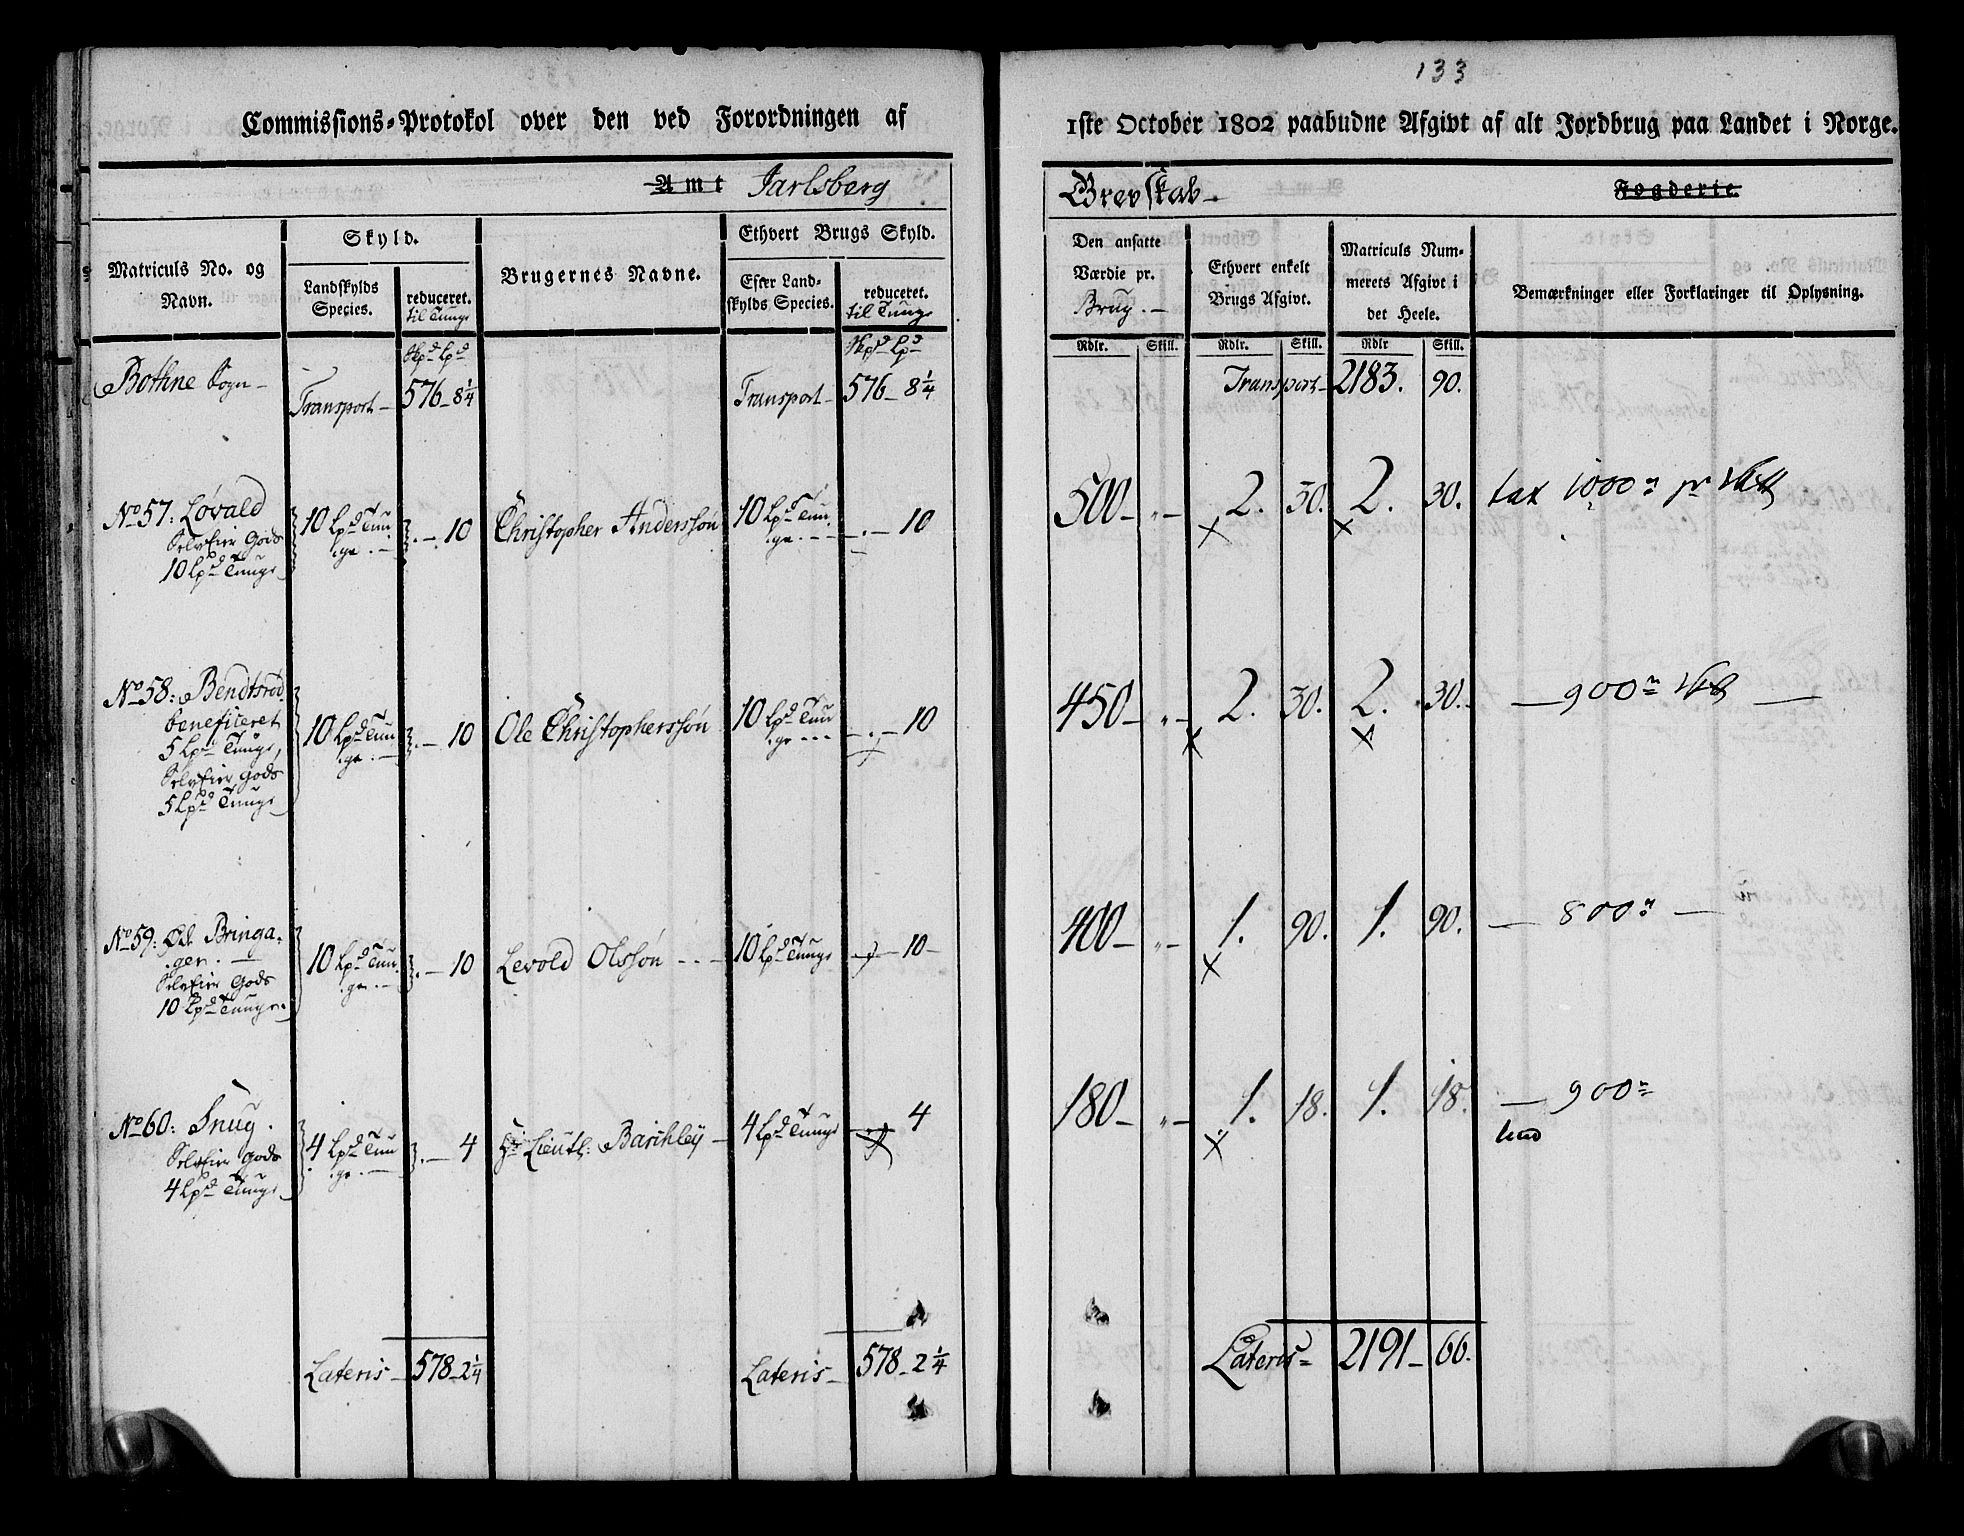 133
Commissions-Protokol over den ved Forordningen af 1ste October 1802 paabudne Afgivt af alt Jordbrug paa Landet i Norge.
Amt Jarlsberg Grevskab. Fogderie
Matriculs No. og Navn.
Skyld.
Landskylds Species.
reduceret. til Tunge
Brugernes Navne.
Ethvert Brugs Skyld.
Efter Landskylds Species.
reduceret. til Tunge
Den ansatte Værdie pr. Brug.
Ethvert enkelt Brugs Afgivt.
Matriculs Nummerets Afgivt i det Heele.
Bemærkninger eller Forklaringer til Oplysning.
Skpd Lpd Skpd Lpd Rdlr. Skill. Rdlr. Skill. Rdlr Skill.
Bothne Sogn Transport 576 8 1/4 Transport 576 8 1/4 Transport 2183. 90.
No 57: Løvald 10 Lpd Tunge 10 Christopher Anderssøn 10 Lpd Tunge 10 500 2. 30. 2. 30. tax 1000
SelvEier Gods
10 Lpd Tunge
No 58: Bendtsrød 10 Lpd Tunge 10 Ole Christopherssøn 10 Lpd Tunge 10 450 2. 30. 2. 30. 900
beneficeret
5 Lpd Tunge,
SelvEier Gods
5 Lpd Tunge
No 59: Ød. Bringager 10 Lpd Tunge 10 Levold Olssøn 10 Lpd Tunge 10 400 1. 90. 1. 90. 800
SelvEier Gods
10 Lpd Tunge.
No 60: Snug. 4 Lpd Tunge 4 Hr Lieutt: Barchley 4 Lpd Tunge 4 180 1. 18. 1. 18. 900
SelvEier Gods
4 Lpd Tunge
Lateris 578 2 1/4 Lateris 578 2 1/4 Lateris 2191 66.